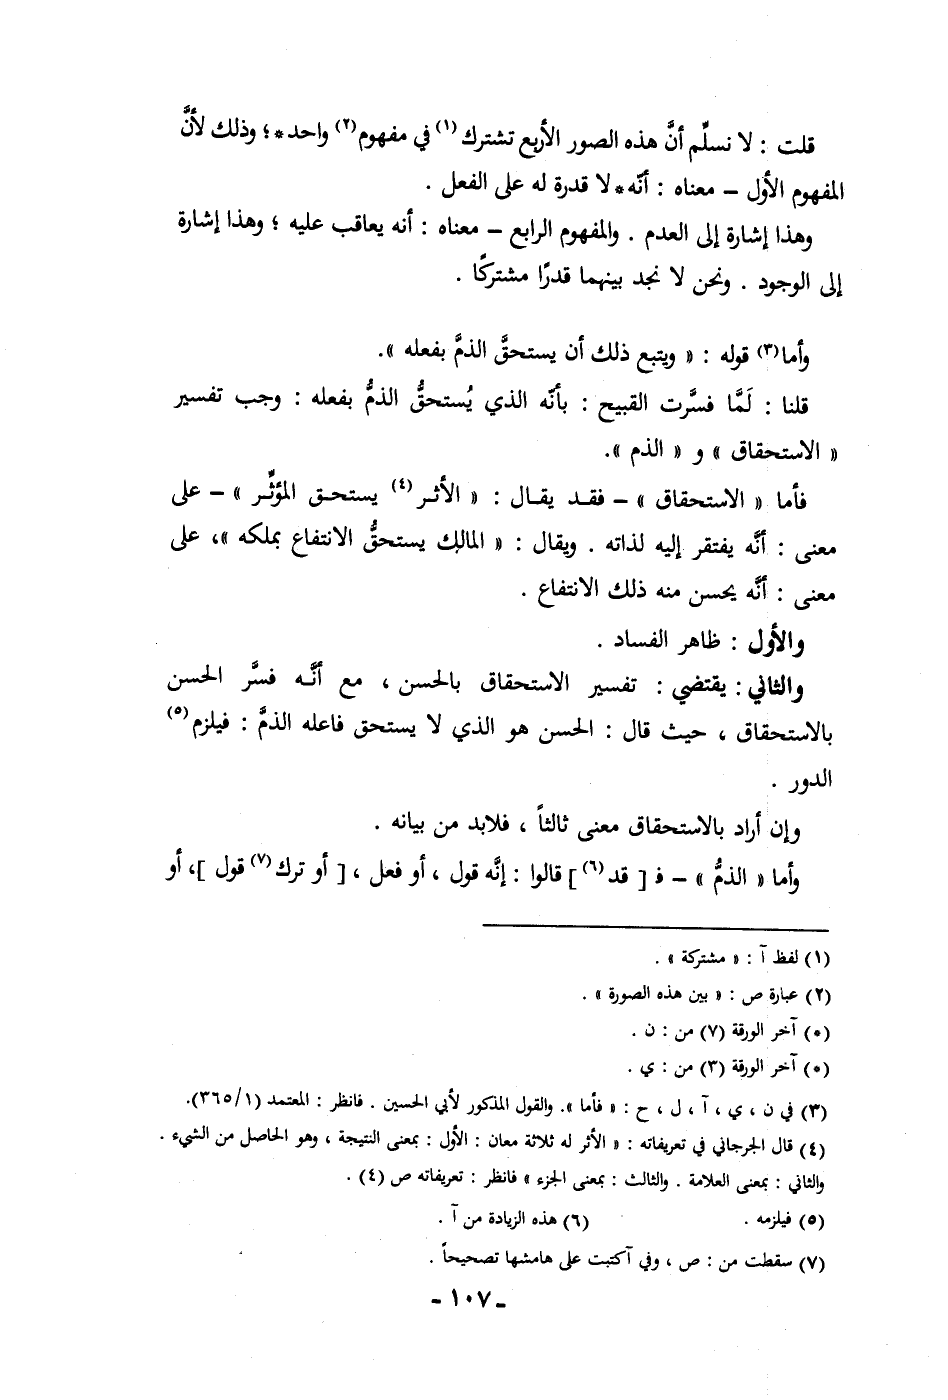 قلت : لا نسلِّم أنَّ هذه الصور الأربع تشترك(١) في مفهوم(٢) واحد* ؛ وذلك لأنَّ
المفهوم الأول – معناه : أنّه* لا قدرة له على الفعل .
وهذا إشارة إلى العدم . والمفهوم الرابع – معناه : أنه يعاقب عليه ؛ وهذا إشارة
إلى الوجود . ونحن لا نجد بينهما قدرًا مشتركًا .
وأما(٣) قوله : « ويتبع ذلك أن يستحقَّ الذمَّ بفعله ».
قلنا : لَمَّا فسَّرت القبيح : بأنّه الذي يُستحقُّ الذمُّ بفعله : وجب تفسير
« الاستحقاق » و « الذم ».
فأما « الاستحقاق » – فقد يقال : « الأثر(٤) يستحق المؤثِّر » – على
معنى : أنَّه يفتقر إليه لذاته . ويقال : « المالك يستحقُّ الانتفاع بملكه »، على
معنى : أنَّه يحسن منه ذلك الانتفاع .
والأول : ظاهر الفساد .
والثاني : يقتضي : تفسير الاستحقاق بالحسن ، مع أنَّه فسَّر الحسن
بالاستحقاق ، حيث قال : الحسن هو الذي لا يستحق فاعله الذمَّ : فيلزم(٥)
الدور .
وإن أراد بالاستحقاق معنى ثالثاً ، فلابد من بيانه .
وأما « الذمُّ » – فـ [ قد(٦) ] قالوا : إنَّه قول ، أو فعل ، [ أو ترك(٧) قول ]، أو
(١) لفظ آ : « مشتركة » .
(٢) عبارة ص : « بين هذه الصورة » .
(*) آخر الورقة (٧) من : ن .
(*) آخر الورقة (٣) من : ي .
(٣) في ن ، ي ، آ ، ل ، ح : « فأما ». والقول المذكور لأبي الحسين . فانظر : المعتمد (٣٦٥/١).
(٤) قال الجرجاني في تعريفاته : « الأثر له ثلاثة معان : الأول : بمعنى النتيجة ، وهو الحاصل من الشيء .
والثاني : بمعنى العلامة . والثالث : بمعنى الجزء » فانظر : تعريفاته ص (٤) .
(٥) فيلزمه . (٦) هذه الزيادة من آ .
(٧) سقطت من : ص ، وفي آ كتبت على هامشها تصحيحاً .
- ١٠٧ -